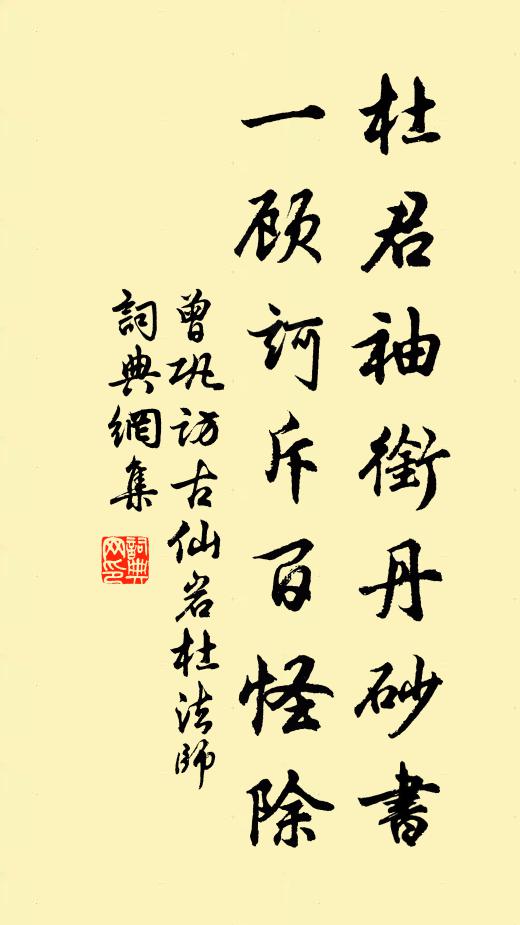 杜君袖銜丹砂書
一顾訶斥百怪除
曾巩访古仙岩杜法師
詞典網集
詞典網印